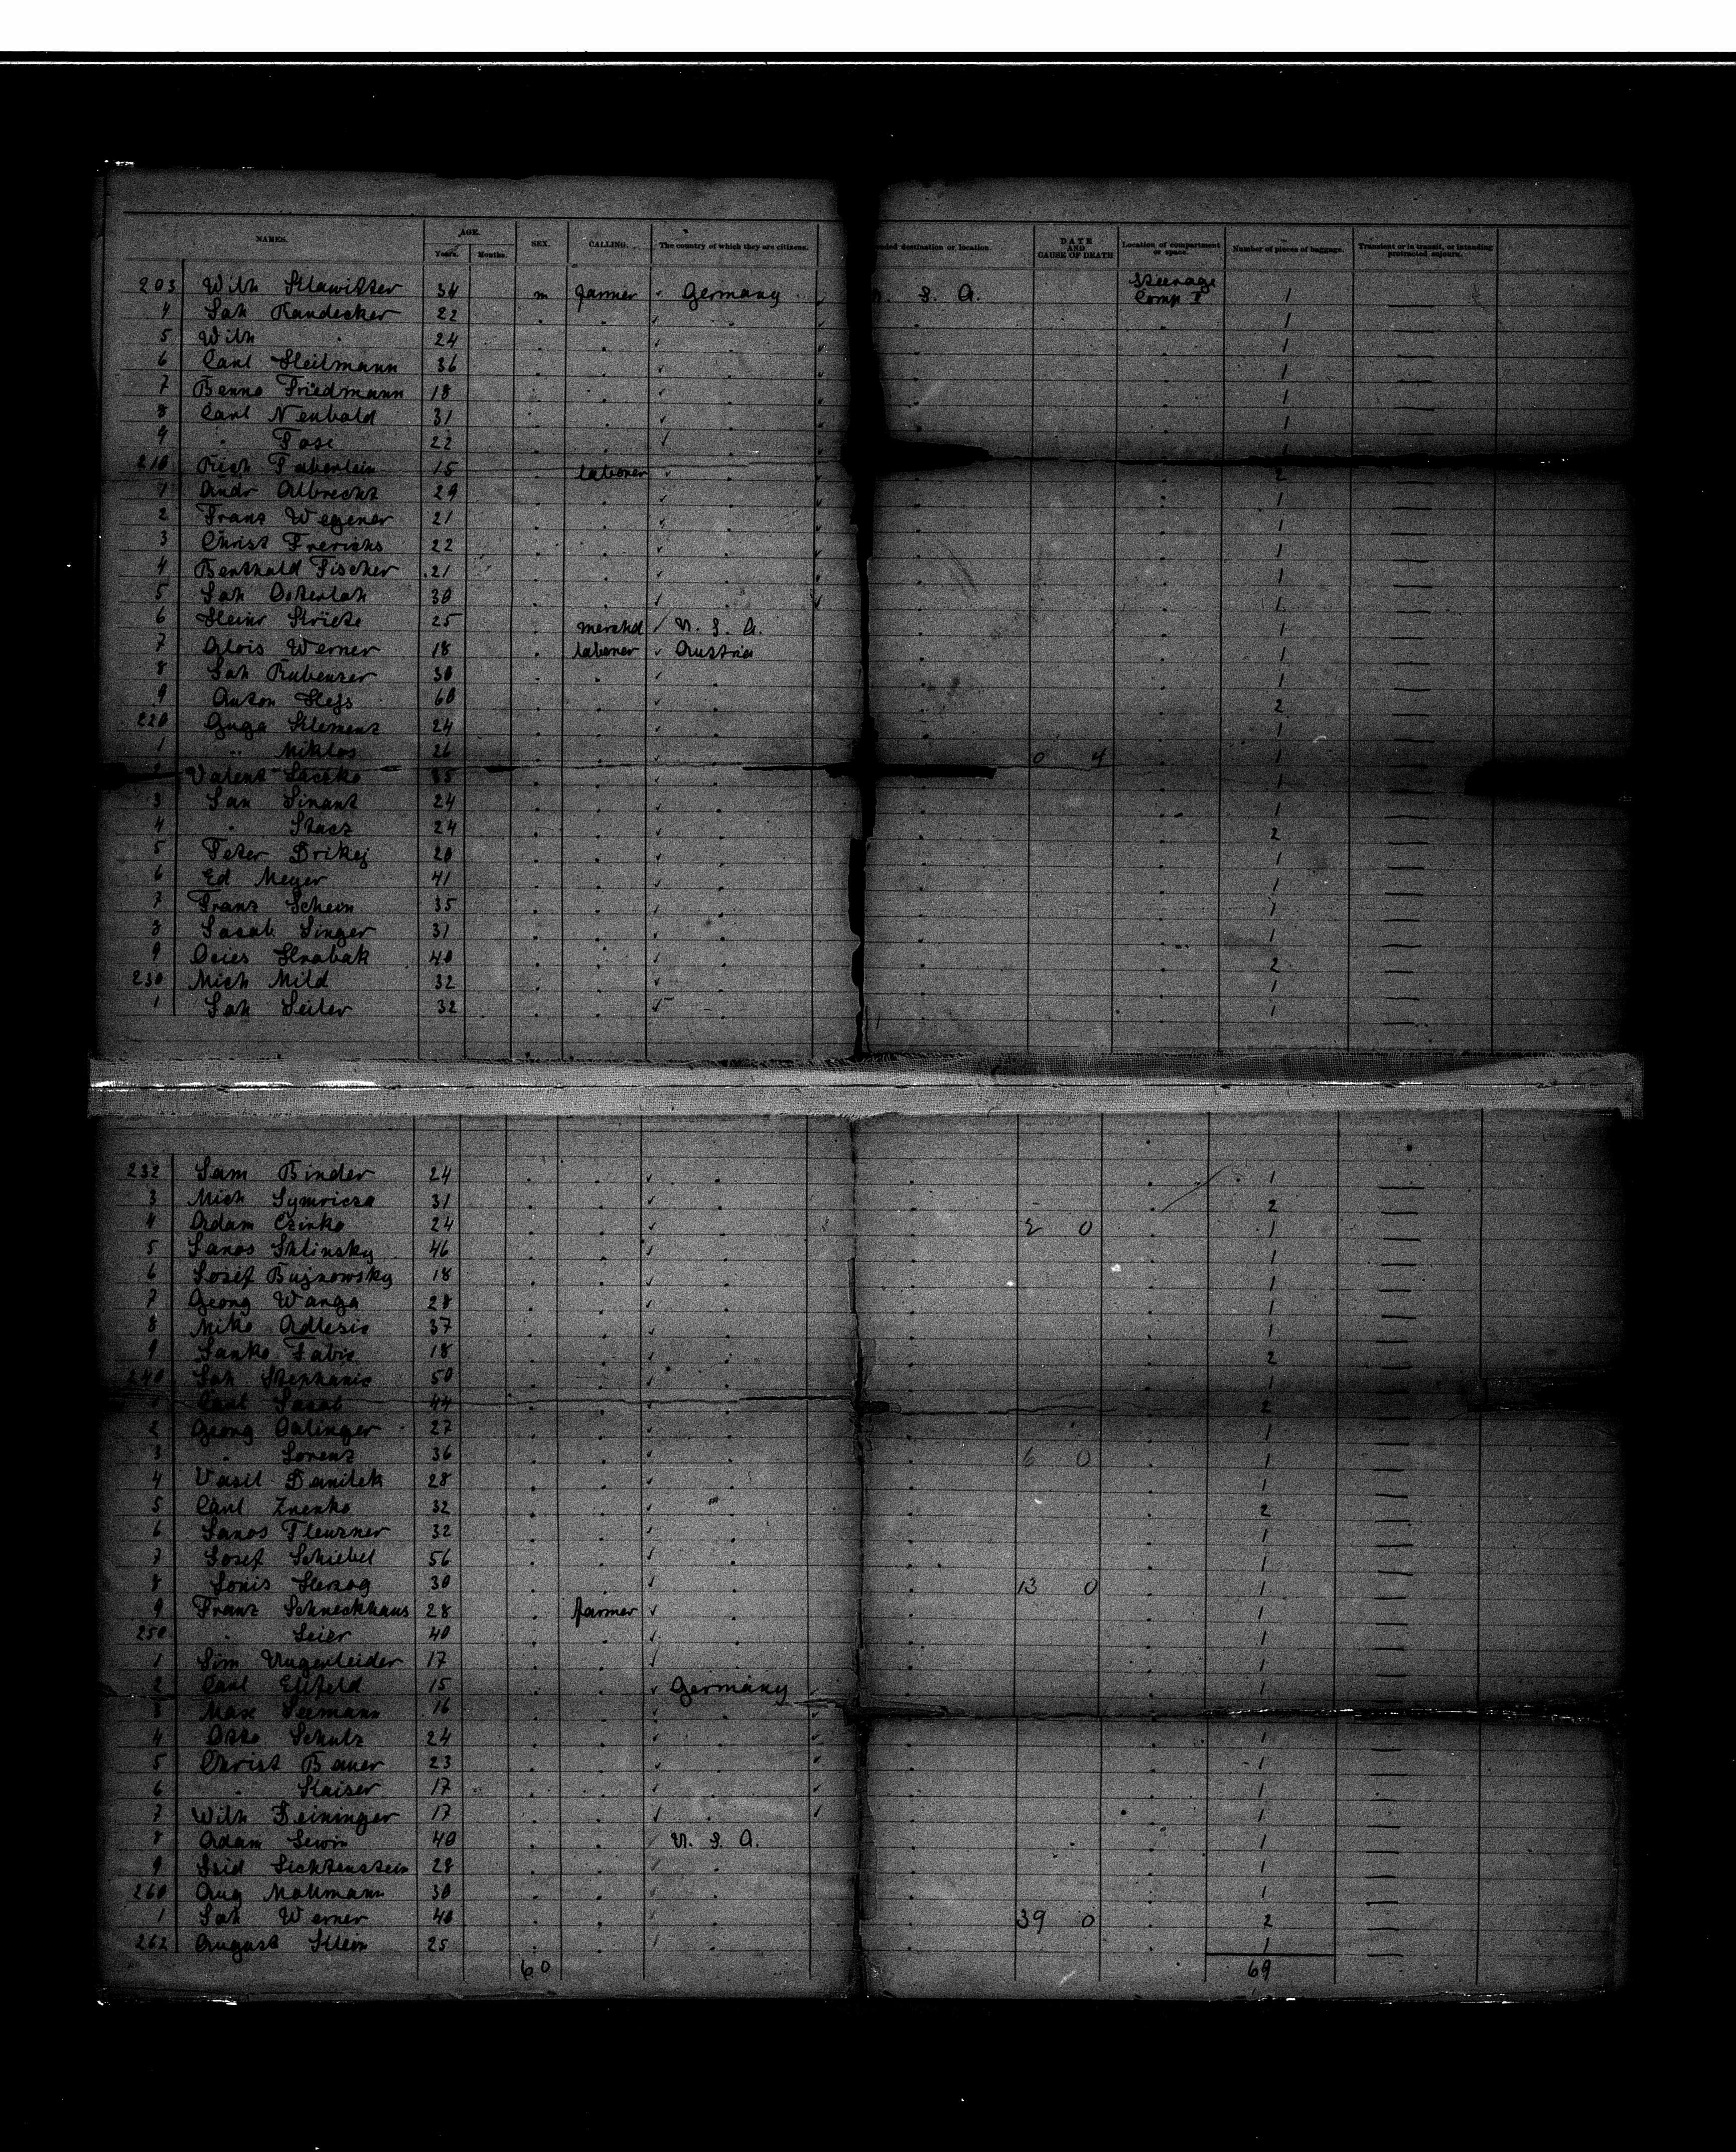 NAMES. AGE. SEX. CALLING. The country of which they are citizens. destination or location. DATE AND CAUSE OF DEATH Location of compartment or space. Number of pieces of baggage. Transient or in transit, or intending protracted sojourn.
Years. Months.
203 Wilh Klawitter 34 m farmer Germany S. A. Steerage Comp I 1
4 Joh Randecker 22 1
5 Wilh 24 1
6 Carl Heilmann 36 1
7 Benno Friedmann 18 1
8 Carl Neubald 31 1
9 " Pose 22 1
210 Rich Faberlein 15 laborer 2
1 Andr Albrecht 29 1
2 Franz Wegener 21 1
3 Christ Frerichs 22 1
4 Berthold Fischer 21 1
5 Joh Osterloh 30 1
6 Heinr Kriete 25 merchd U. S. A. 1
7 Alois Werner 18 laborer Austria 1
8 Joh Rubenzer 30 1
9 Anton Hess 60 2
220 Guga Klement 24 1
1 " Miklos 26 0 4 1
Valent Laczko 35 1
3 Jan Sinant 24 1
4 " Stasz 24 2
5 Peter Drikej 20 1
6 Ed Meyer 41 1
7 Franz Schein 35 1
8 Jacob Singer 31 1
9 Hrabak 40 2
230 Mich Mild 32 1
1 Joh Seiler 32 1
232 Sam Binder 24 1
3 Mich Symricza 31 2
4 Adam Czinko 24 2 0 1
5 Janos Sklinsky 46 1
6 Josef Bujnowsky 18 1
7 Georg Wanga 28 1
8 Miko Adlesic 37 1
9 Janko Fabic 18 2
240 Joh Stephanic 50 1
Carl Jacob 44 2
2 Georg Oalinger 27 1
3 " Lorenz 36 6 0 1
4 Vasil Danilek 28 1
5 Carl Znenko 32 2
6 Janos Pleuzner 32 1
7 Josef Schiebel 56 1
8 Louis Herzog 30 13 0 1
9 Franz Schneckhaus 28 farmer 1
250 " Seier 40 1
1 Sim Ungerleider 17 1
2 Carl Ellfeld 15 Germany 1
3 Max Seemann 16
4 Otto Schulz 24 1
5 Christ Bauer 23 1
6 " Kaiser 17 1
7 Wilh Deininger 17 1
8 Adam Lewin 40 U. S. A. 1
9 Isid Lichtenstein 28 1
260 Aug Mohmann 30 1
1 Joh Werner 40 39 0 2
262 August Klein 25 1
60 69